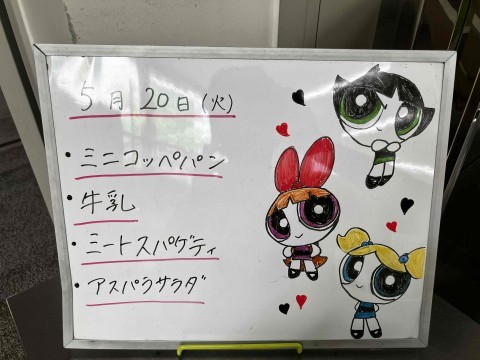 5月20日(火)
・ミニコッペパン
・牛乳
・ミートスパゲティ
・アスパラサラダ